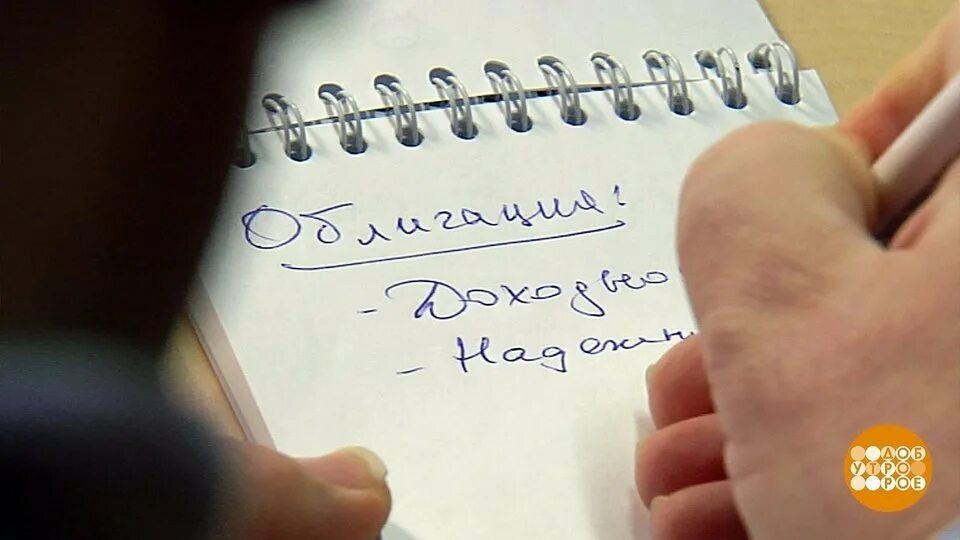 Облигация:
- Доходно
- Надежн
ДОБ
УТРО
РОЕ